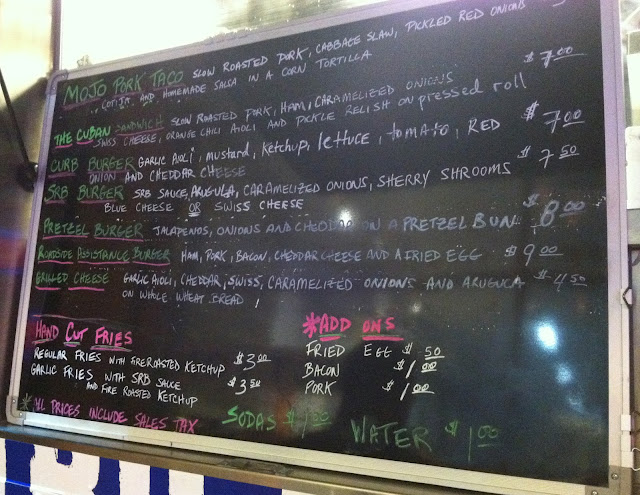 MOJO PORK TACO SLOW ROASTED PORK, CABBAGE SLAW, PICKLED RED ONIONS
AND HOMEMADE SALSA IN A CORN TORTILLA
THE CUBAN SANDWICH SLOW ROASTED PORK, HAM, CARAMELIZED ONIONS $7.00
SWISS CHEESE, ORANGE CHILI AIOLI AND PICKLE RELISH ON pressed roll
CURB BURGER GARLIC AIOLI, mustard, Ketchup, lettuce, tomato, RED $7.00
ONION AND CHEDDAR CHEESE
SRB BURGER SRB SAUCE, ARUGULA, CARAMELIZED ONIONS, SHERRY SHROOMS $7.50
BLUE CHEESE OR SWISS CHEESE
PRETZEL BURGER JALAPENOS, ONIONS AND CHEDDAR ON A PRETZEL BUN $8.00
ROADSIDE ASSISTANCE BURGER HAM, PORK, BACON, CHEDDAR CHEESE AND A FRIED EGG $9.00
GRILLED CHEESE GARLIC AIOLI, CHEDDAR, SWISS, CARAMELIZED ONIONS AND ARUGULA $4.50
ON WHOLE WHEAT BREAD!
HAND CUT FRIES
REGULAR FRIES WITH FIRE ROASTED KETCHUP $3.00
GARLIC FRIES WITH SRB SAUCE $3.50
AND FIRE ROASTED KETCHUP
*ADD ONS
FRIED EGG $.50
BACON $1.00
PORK $1.00
*ALL PRICES INCLUDE SALES TAX
SODAS $1.00
WATER $1.00